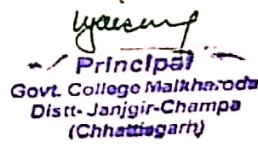 Principal
Govt. College Malkharoda
Distt- Janjgir-Champa
(Chhattisgarh)